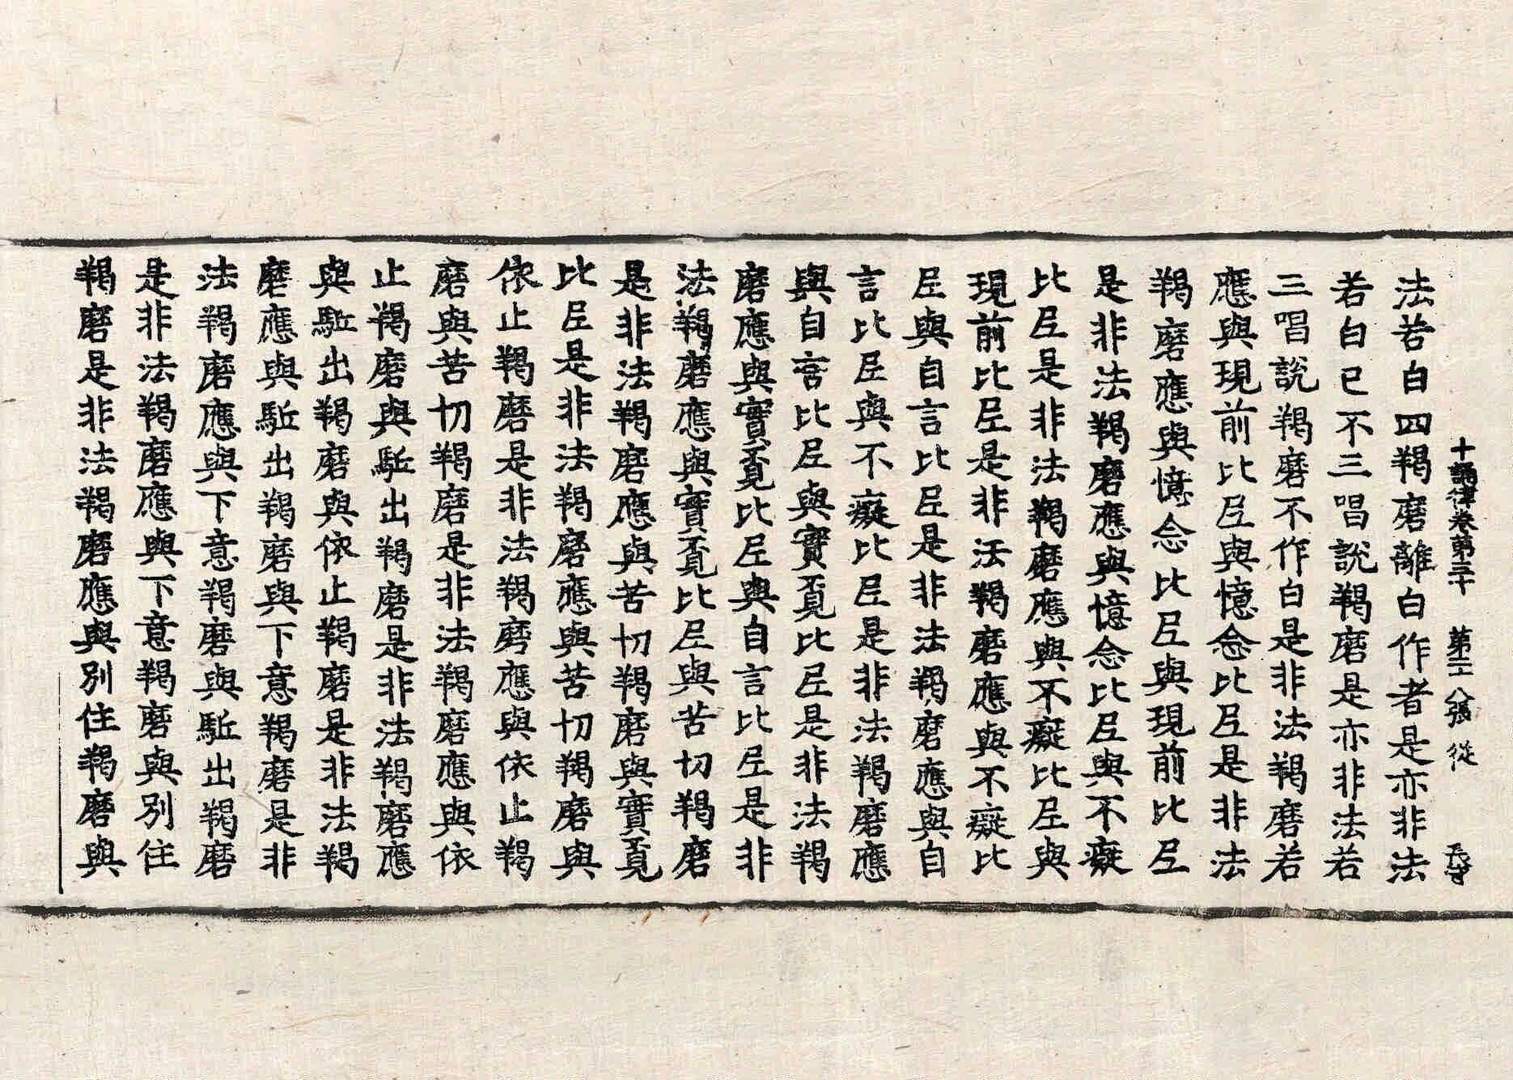 十誦律卷第三十　第二八張　從
法若白四羯磨離白作者是亦非法
若白已不三唱說羯磨是亦非法若
三唱說羯磨不作白是非法羯磨若
應與現前比𡰱與憶念比𡰱是非法
羯磨應與憶念比𡰱與現前比𡰱
是非法羯磨應與憶念比𡰱與不癡
比𡰱是非法羯磨應與不癡比𡰱與
現前比𡰱是非法羯磨應與不癡比
𡰱與自言比𡰱是非法羯磨應與自
言比𡰱與不癡比𡰱是非法羯磨應
與自言比𡰱與實覓比𡰱是非法羯
磨應與實覓比𡰱與自言比𡰱是非
法羯磨應與實覓比𡰱與苦切羯磨
是非法羯磨應與苦切羯磨與實覓
比𡰱是非法羯磨應與苦切羯磨與
依止羯磨是非法羯磨應與依止羯
磨與苦切羯磨是非法羯磨應與依
止羯磨與駈出羯磨是非法羯磨應
與駈出羯磨與依止羯磨是非法羯
磨應與駈出羯磨與下意羯磨是非
法羯磨應與下意羯磨與駈出羯磨
是非法羯磨應與下意羯磨與別住
羯磨是非法羯磨應與別住羯磨與